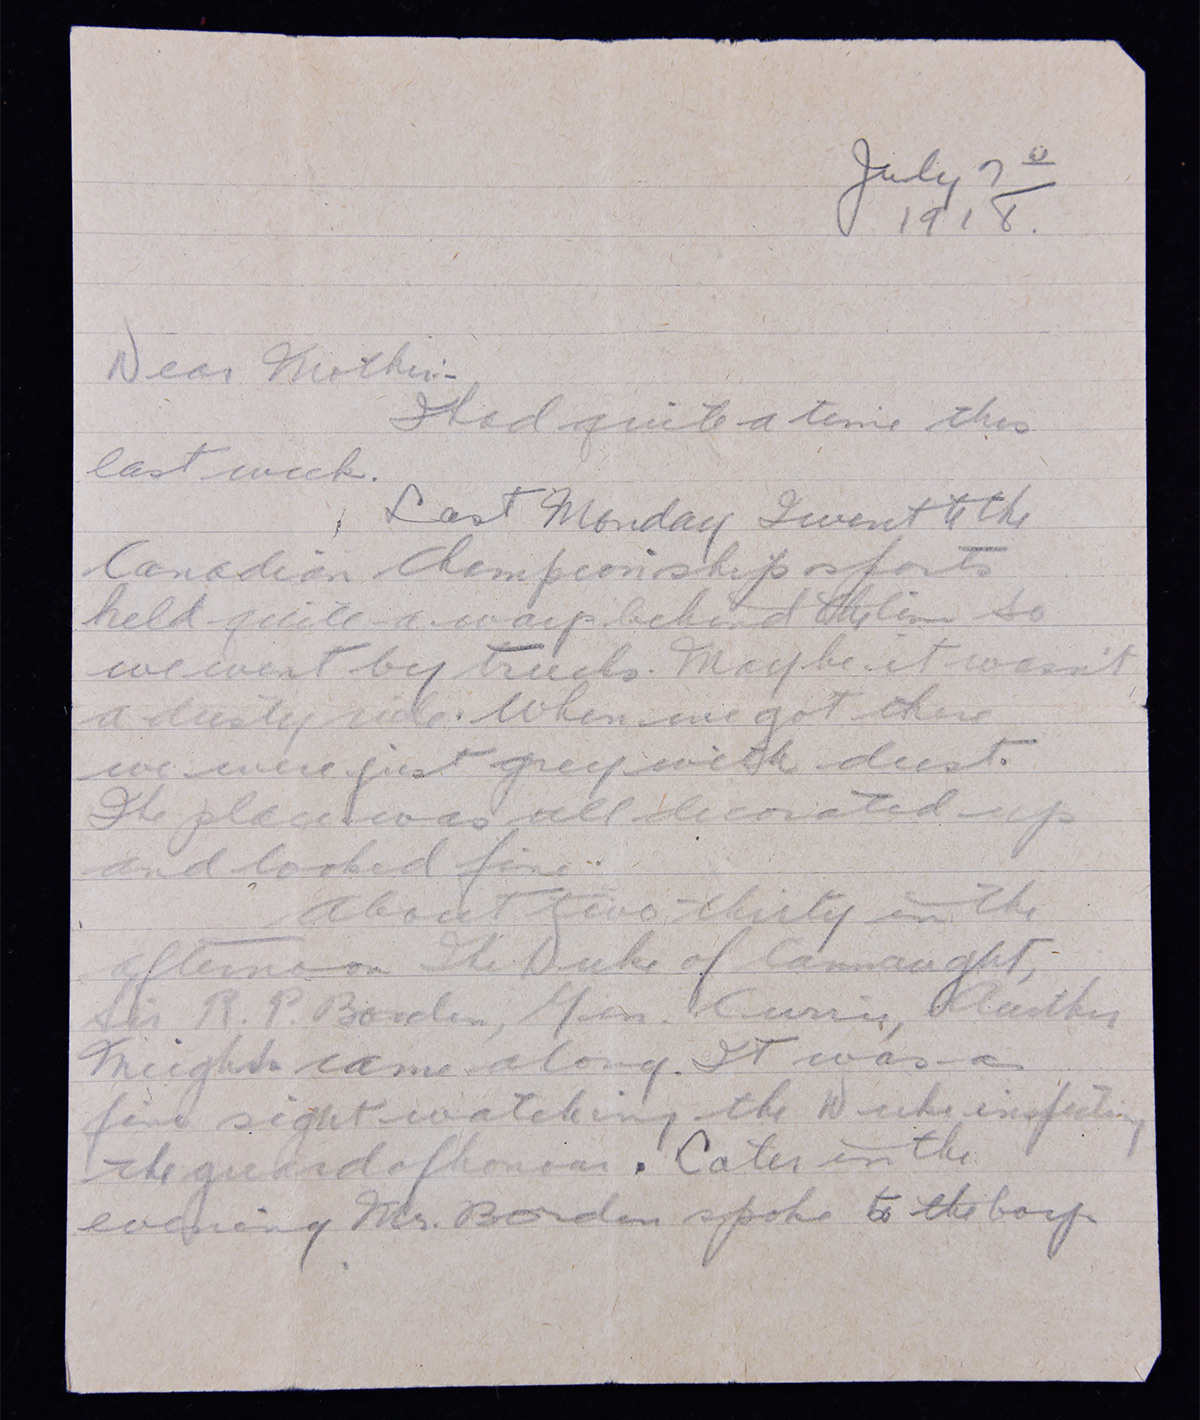 July 7th
1918.
Dear Mother:-
I had quite a time this
last week.
Last Monday I went to the
Canadian Championship sports
held quite a ways behind the line so
we went by trucks. Maybe it wasn't
a dusty ride. When we got there
we were just grey with dust.
The place was all decorated up
and looked fine.
About two-thirty in the
afternoon The Duke of Connaught,
Sir R. P. Borden, Gen. Currie, Arthur
Meighen came along. It was a
fine sight watching the Duke inspecting
the guard of honour. Later in the
evening Mr. Borden spoke to the boys